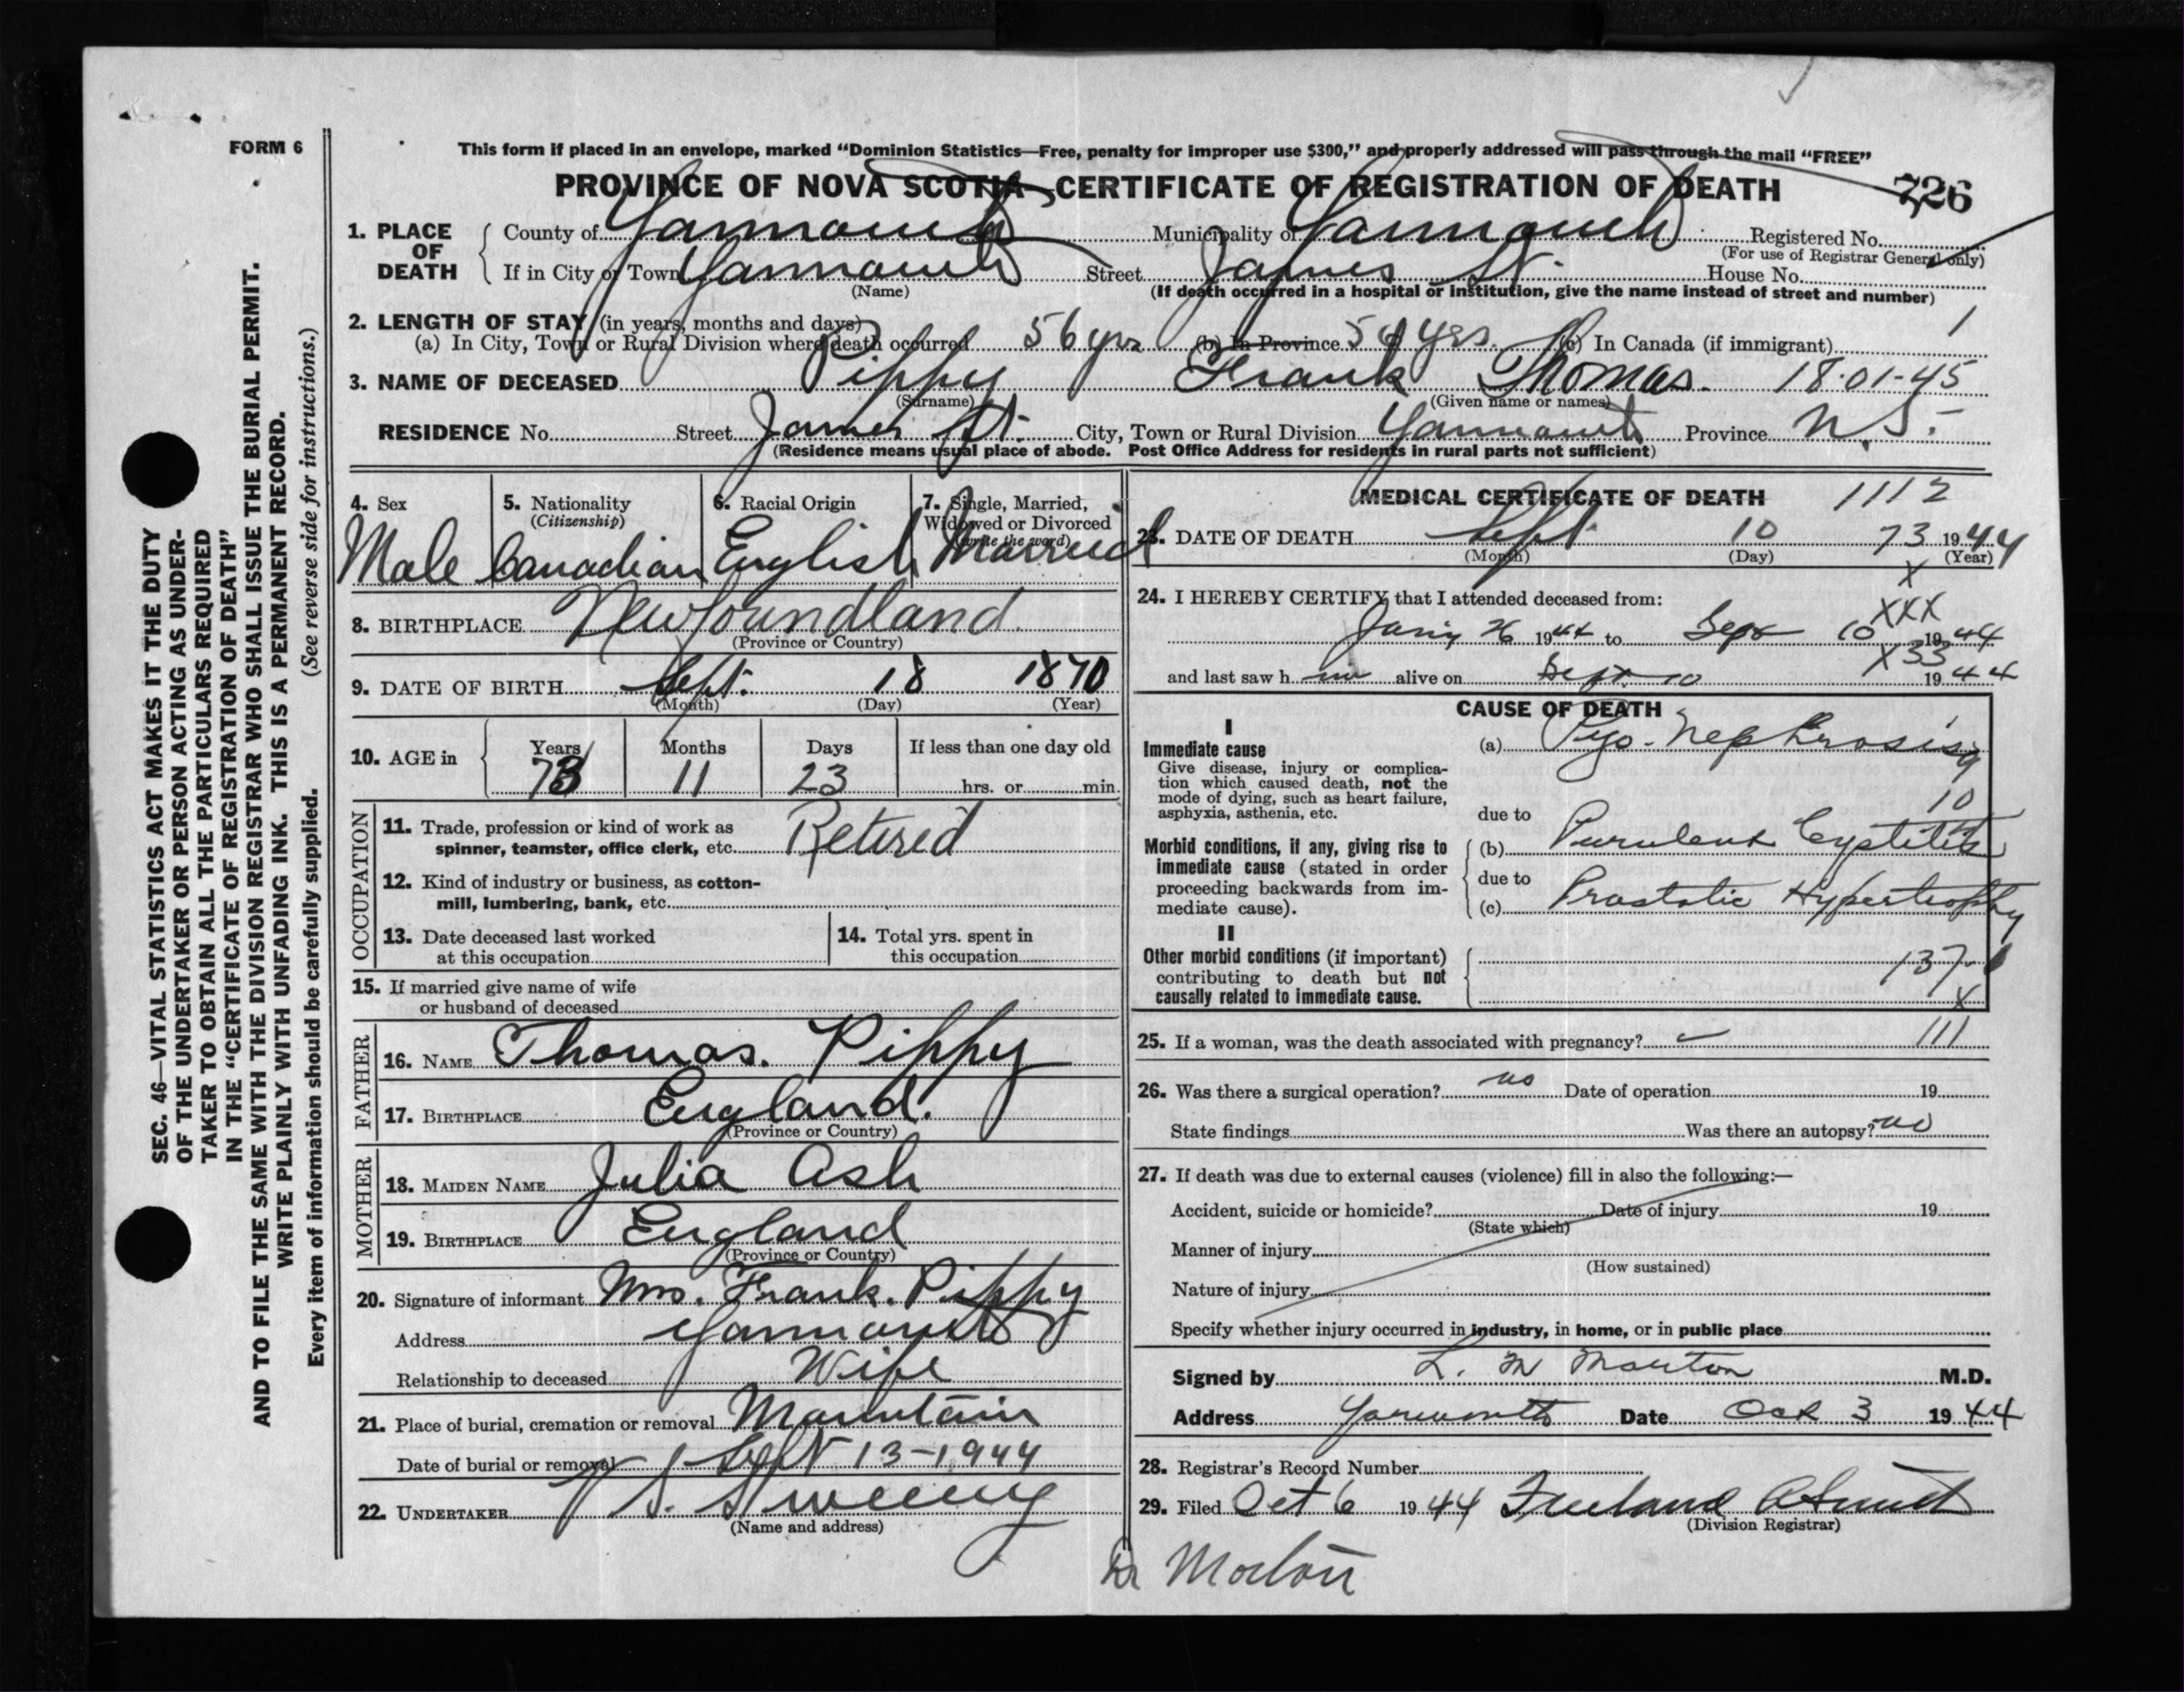 FORM 6
This form if placed in an envelope, marked "Dominion Statistics—Free, penalty for improper use $300," and properly addressed will pass through the mail "FREE"
PROVINCE OF NOVA SCOTIA—CERTIFICATE OF REGISTRATION OF DEATH
726
1. PLACE OF DEATH
County of Yarmouth Municipality of Yarmouth Registered No.
(For use of Registrar General only)
If in City or Town Yarmouth Street James St. House No.
(Name) (If death occurred in a hospital or institution, give the name instead of street and number)
2. LENGTH OF STAY (in years, months and days) 1
(a) In City, Town or Rural Division where death occurred 56 yrs (b) In Province 56 yrs. (c) In Canada (if immigrant)
3. NAME OF DECEASED Pippy Frank Thomas. 18-01-45
(Surname) (Given name or names)
RESIDENCE No. Street James St. City, Town or Rural Division Yarmouth Province N.S.
(Residence means usual place of abode. Post Office Address for residents in rural parts not sufficient)
4. Sex
Male
5. Nationality
(Citizenship)
Canadian
6. Racial Origin
English
7. Single, Married,
Widowed or Divorced
(write the word)
Married
8. BIRTHPLACE Newfoundland
(Province or Country)
9. DATE OF BIRTH Sept. 18 1870
(Month) (Day) (Year)
10. AGE in Years Months Days If less than one day old
73 11 23 hrs. or min.
OCCUPATION
11. Trade, profession or kind of work as
spinner, teamster, office clerk, etc. Retired
12. Kind of industry or business, as cotton-
mill, lumbering, bank, etc.
13. Date deceased last worked
at this occupation
14. Total yrs. spent in
this occupation
15. If married give name of wife
or husband of deceased
FATHER
16. NAME Thomas. Pippy
17. BIRTHPLACE England.
(Province or Country)
MOTHER
18. MAIDEN NAME Julia Ash
19. BIRTHPLACE England
(Province or Country)
20. Signature of informant Mrs. Frank. Pippy
Address Yarmouth
Relationship to deceased Wife
21. Place of burial, cremation or removal Mountain
Date of burial or removal Sept 13-1944
22. UNDERTAKER V S. Sweeny
(Name and address)
MEDICAL CERTIFICATE OF DEATH 1112
23. DATE OF DEATH Sept 10 73 1944
(Month) (Day) (Year)
X
24. I HEREBY CERTIFY that I attended deceased from:
XXX
26 1944 to Sept 10 1944
X33
and last saw h im alive on Sept. 10 1944
CAUSE OF DEATH
I
Immediate cause
Give disease, injury or complica-
tion which caused death, not the
mode of dying, such as heart failure,
asphyxia, asthenia, etc.
(a) Pyo-Nephrosis
9
10
due to
Morbid conditions, if any, giving rise to
immediate cause (stated in order
proceeding backwards from im-
mediate cause).
(b) Purulent Cystitis
due to
(c) Prostatic Hypertrophy
II
Other morbid conditions (if important)
contributing to death but not
causally related to immediate cause.
137-1
X
25. If a woman, was the death associated with pregnancy? 111
26. Was there a surgical operation? no Date of operation 19
State findings Was there an autopsy? no
27. If death was due to external causes (violence) fill in also the following:—
Accident, suicide or homicide? Date of injury 19
(State which)
Manner of injury
(How sustained)
Nature of injury
Specify whether injury occurred in industry, in home, or in public place
Signed by L. M Morton M.D.
Address Yarmouth Date Oct 3 1944
28. Registrar's Record Number
29. Filed Oct 6 1944
(Division Registrar)
Dr Morton
SEC. 46—VITAL STATISTICS ACT MAKES IT THE DUTY
OF THE UNDERTAKER OR PERSON ACTING AS UNDER-
TAKER TO OBTAIN ALL THE PARTICULARS REQUIRED
IN THE "CERTIFICATE OF REGISTRATION OF DEATH"
AND TO FILE THE SAME WITH THE DIVISION REGISTRAR WHO SHALL ISSUE THE BURIAL PERMIT.
WRITE PLAINLY WITH UNFADING INK. THIS IS A PERMANENT RECORD.
Every item of information should be carefully supplied. (See reverse side for instructions.)